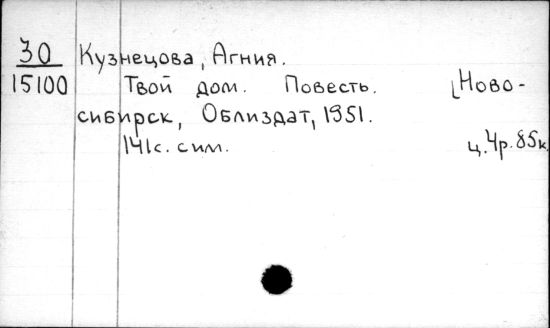 30 Кузнецова, Агния.
15100 Твой дом. Повесть. [Ново-
сибирск, Облиздат, 1951.
141с. с им. ц. 4р. 85к.